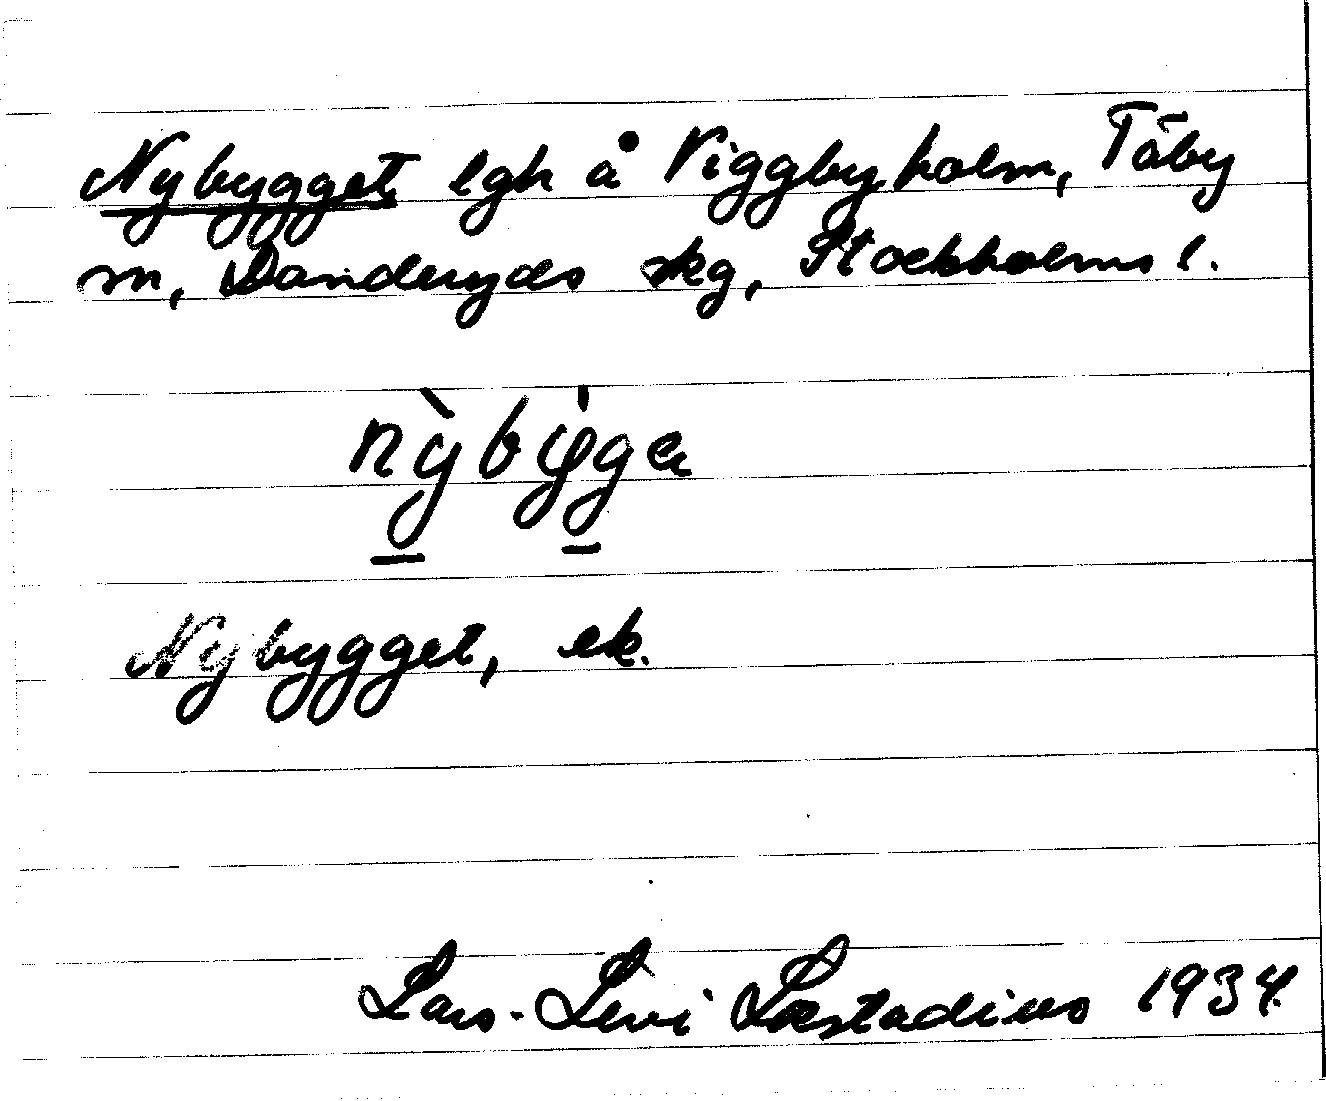 Nybygget lgh å Viggbyholm, Täby
sn, Danderyds skg, Stockholms l.
nỳbýgga
Nybygget, ek.
Lars-Levi Læstadius 1934.